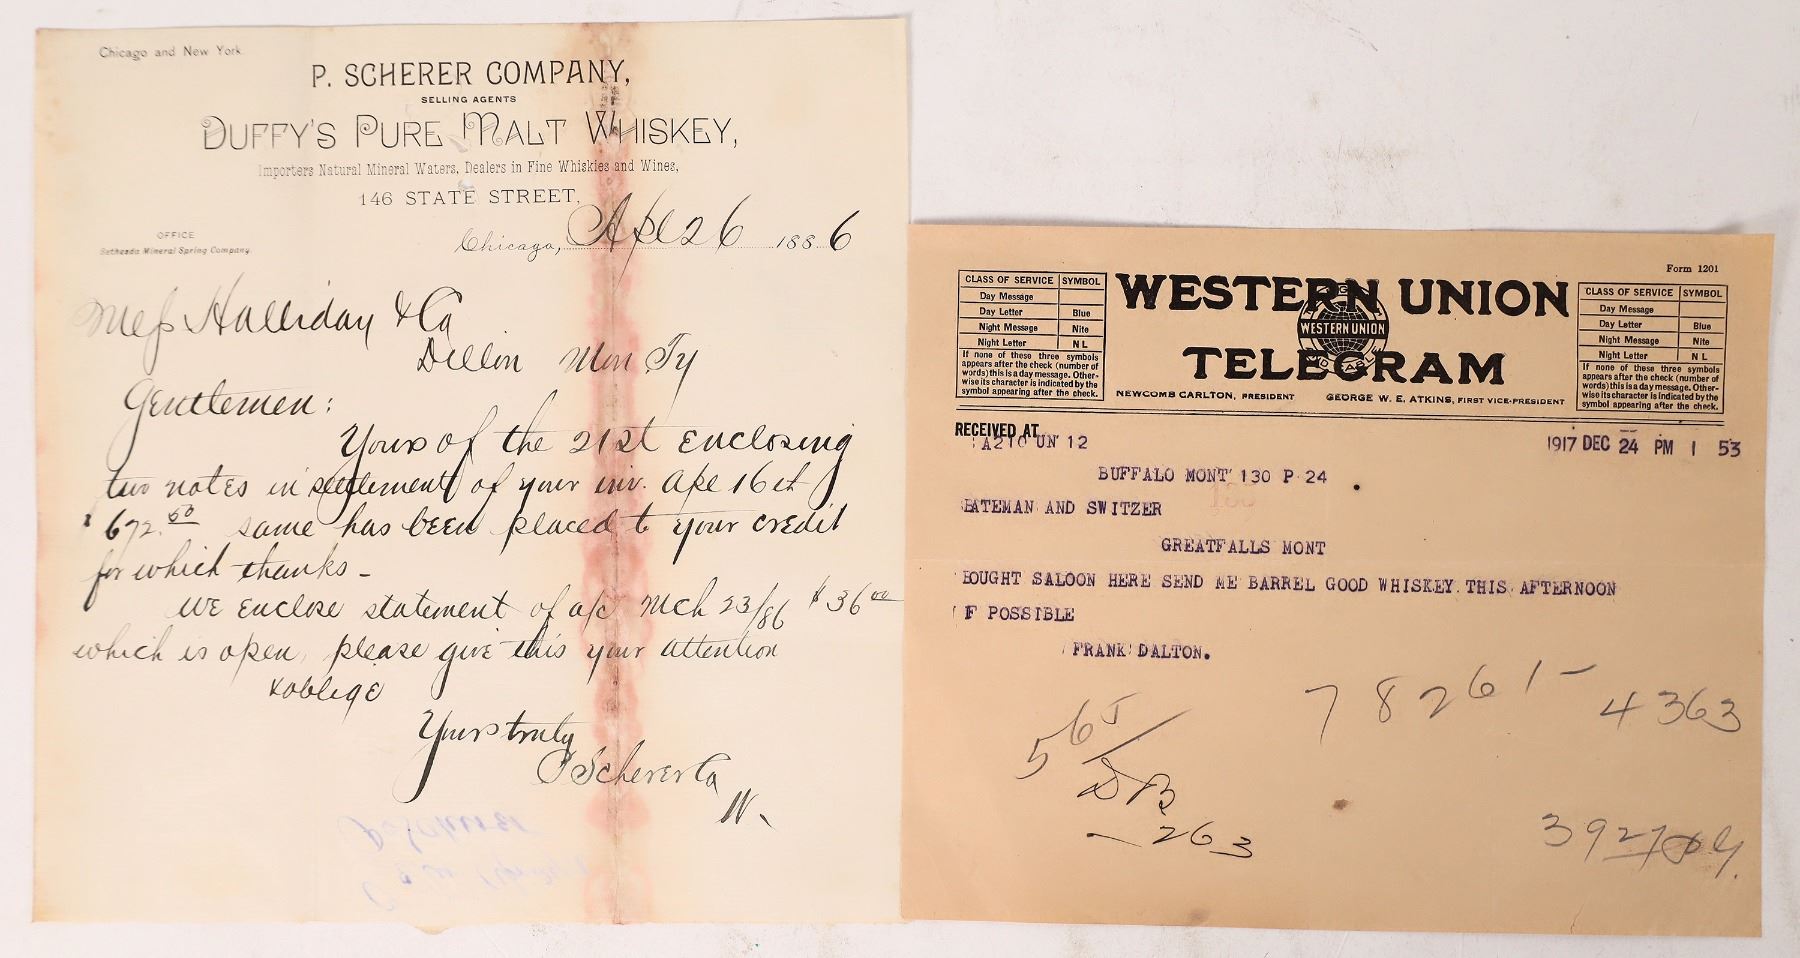 Chicago and New York
P. SCHERER COMPANY,
SELLING AGENTS
DUFFY'S PURE MALT WHISKEY,
Importers Natural Mineral Waters, Dealers in Fine Whiskies and Wines,
146 STATE STREET,
OFFICE
Bethesda Mineral Spring Company
Chicago, Apl 26 1886
Mess Halliday & Co
Dillon Mon Ty
Gentlemen:
Yours of the 21st enclosing
two notes in settlement of your inv. Apl 16th
$672.50 same has been placed to your credit
for which thanks -
We enclose statement of a/c Mch 23/86 $36 00
which is open, please give this your attention
& oblige
Yours truly
P Scherer Co
W.
Form 1201
CLASS OF SERVICE SYMBOL
Day Message
Day Letter Blue
Night Message Nite
Night Letter N L
If none of these three symbols
appears after the check (number of
words) this is a day message. Other-
wise its character is indicated by the
symbol appearing after the check.
WESTERN UNION
WESTERN UNION
TELEGRAM
NEWCOMB CARLTON, PRESIDENT GEORGE W. E. ATKINS, FIRST VICE-PRESIDENT
CLASS OF SERVICE SYMBOL
Day Message
Day Letter Blue
Night Message Nite
Night Letter N L
If none of these three symbols
appears after the check (number of
words) this is a day message. Other-
wise its character is indicated by the
symbol appearing after the check.
RECEIVED AT
A210 UN 12 1917 DEC 24 PM 1 53
BUFFALO MONT 130 P 24
BATEMAN AND SWITZER
GREATFALLS MONT
BOUGHT SALOON HERE SEND ME BARREL GOOD WHISKEY THIS AFTERNOON
IF POSSIBLE
FRANK DALTON.
78261-
4363
565/
DB
-263